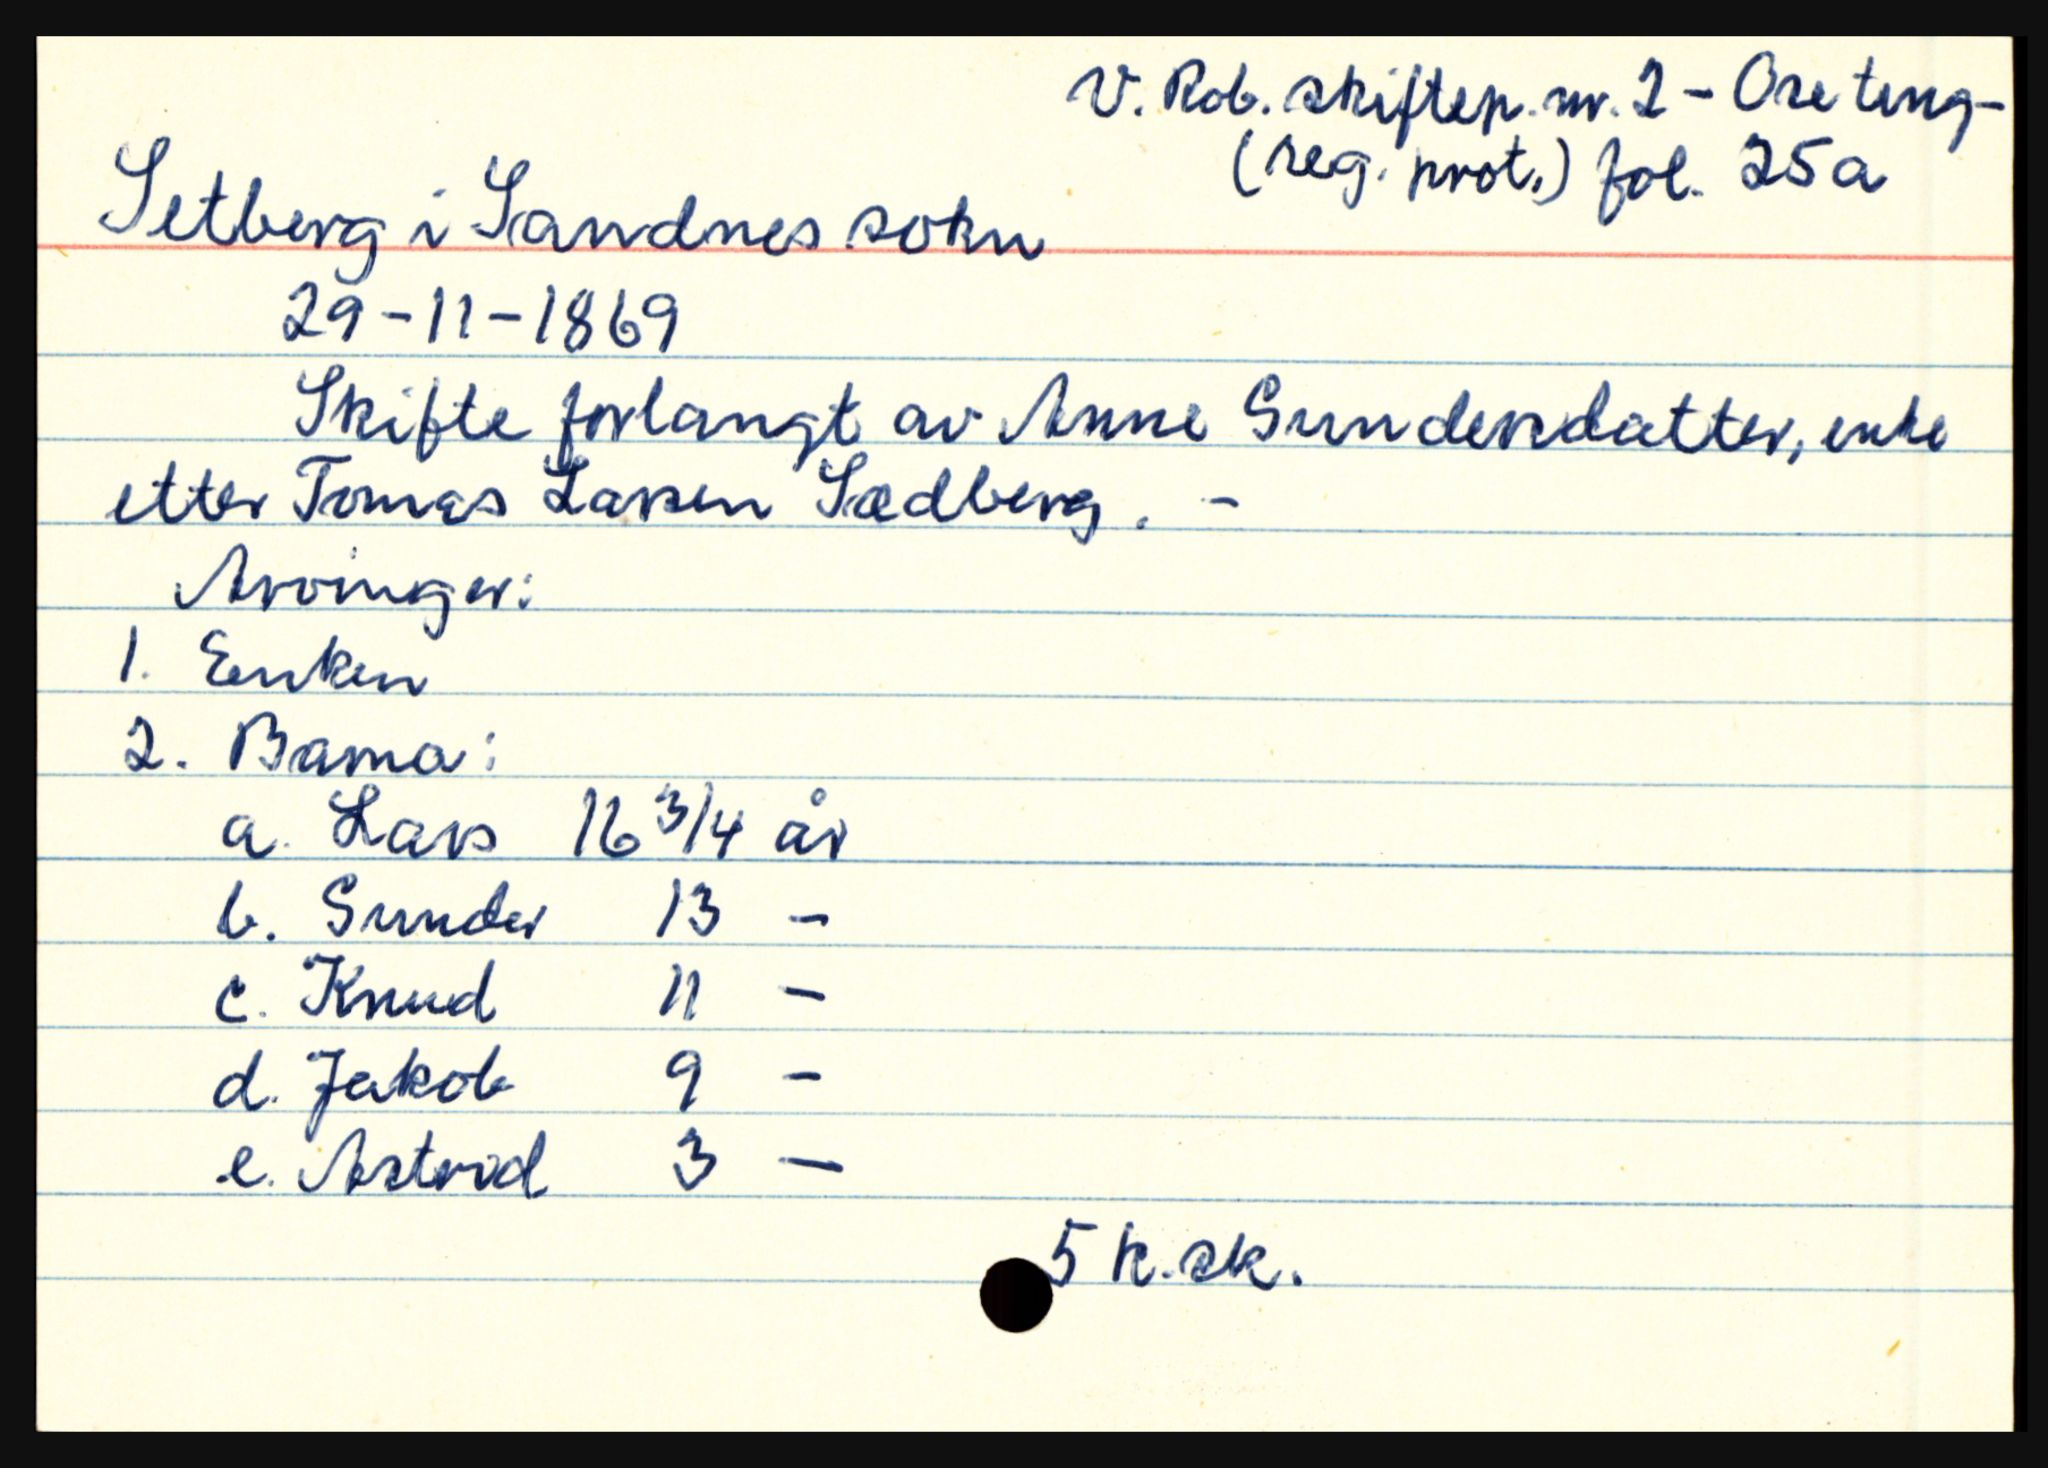 V. Rob. skiftep. nr. 2 - Ose ting-
(reg. prot.) fol. 25a
Setberg i Sandnes sokn
29-11-1869
Skifte forlangt av Anne Gundersdatter, enke
etter Tomas Larsen Sædberg. -
Arvinger:
1. Enken
2. Barna:
a. Lars 16 3/4 år
b. Gunder 13 -
c. Knud 11 -
d. Jakob 9 -
e. Astrid 3 -
5 k.sk.